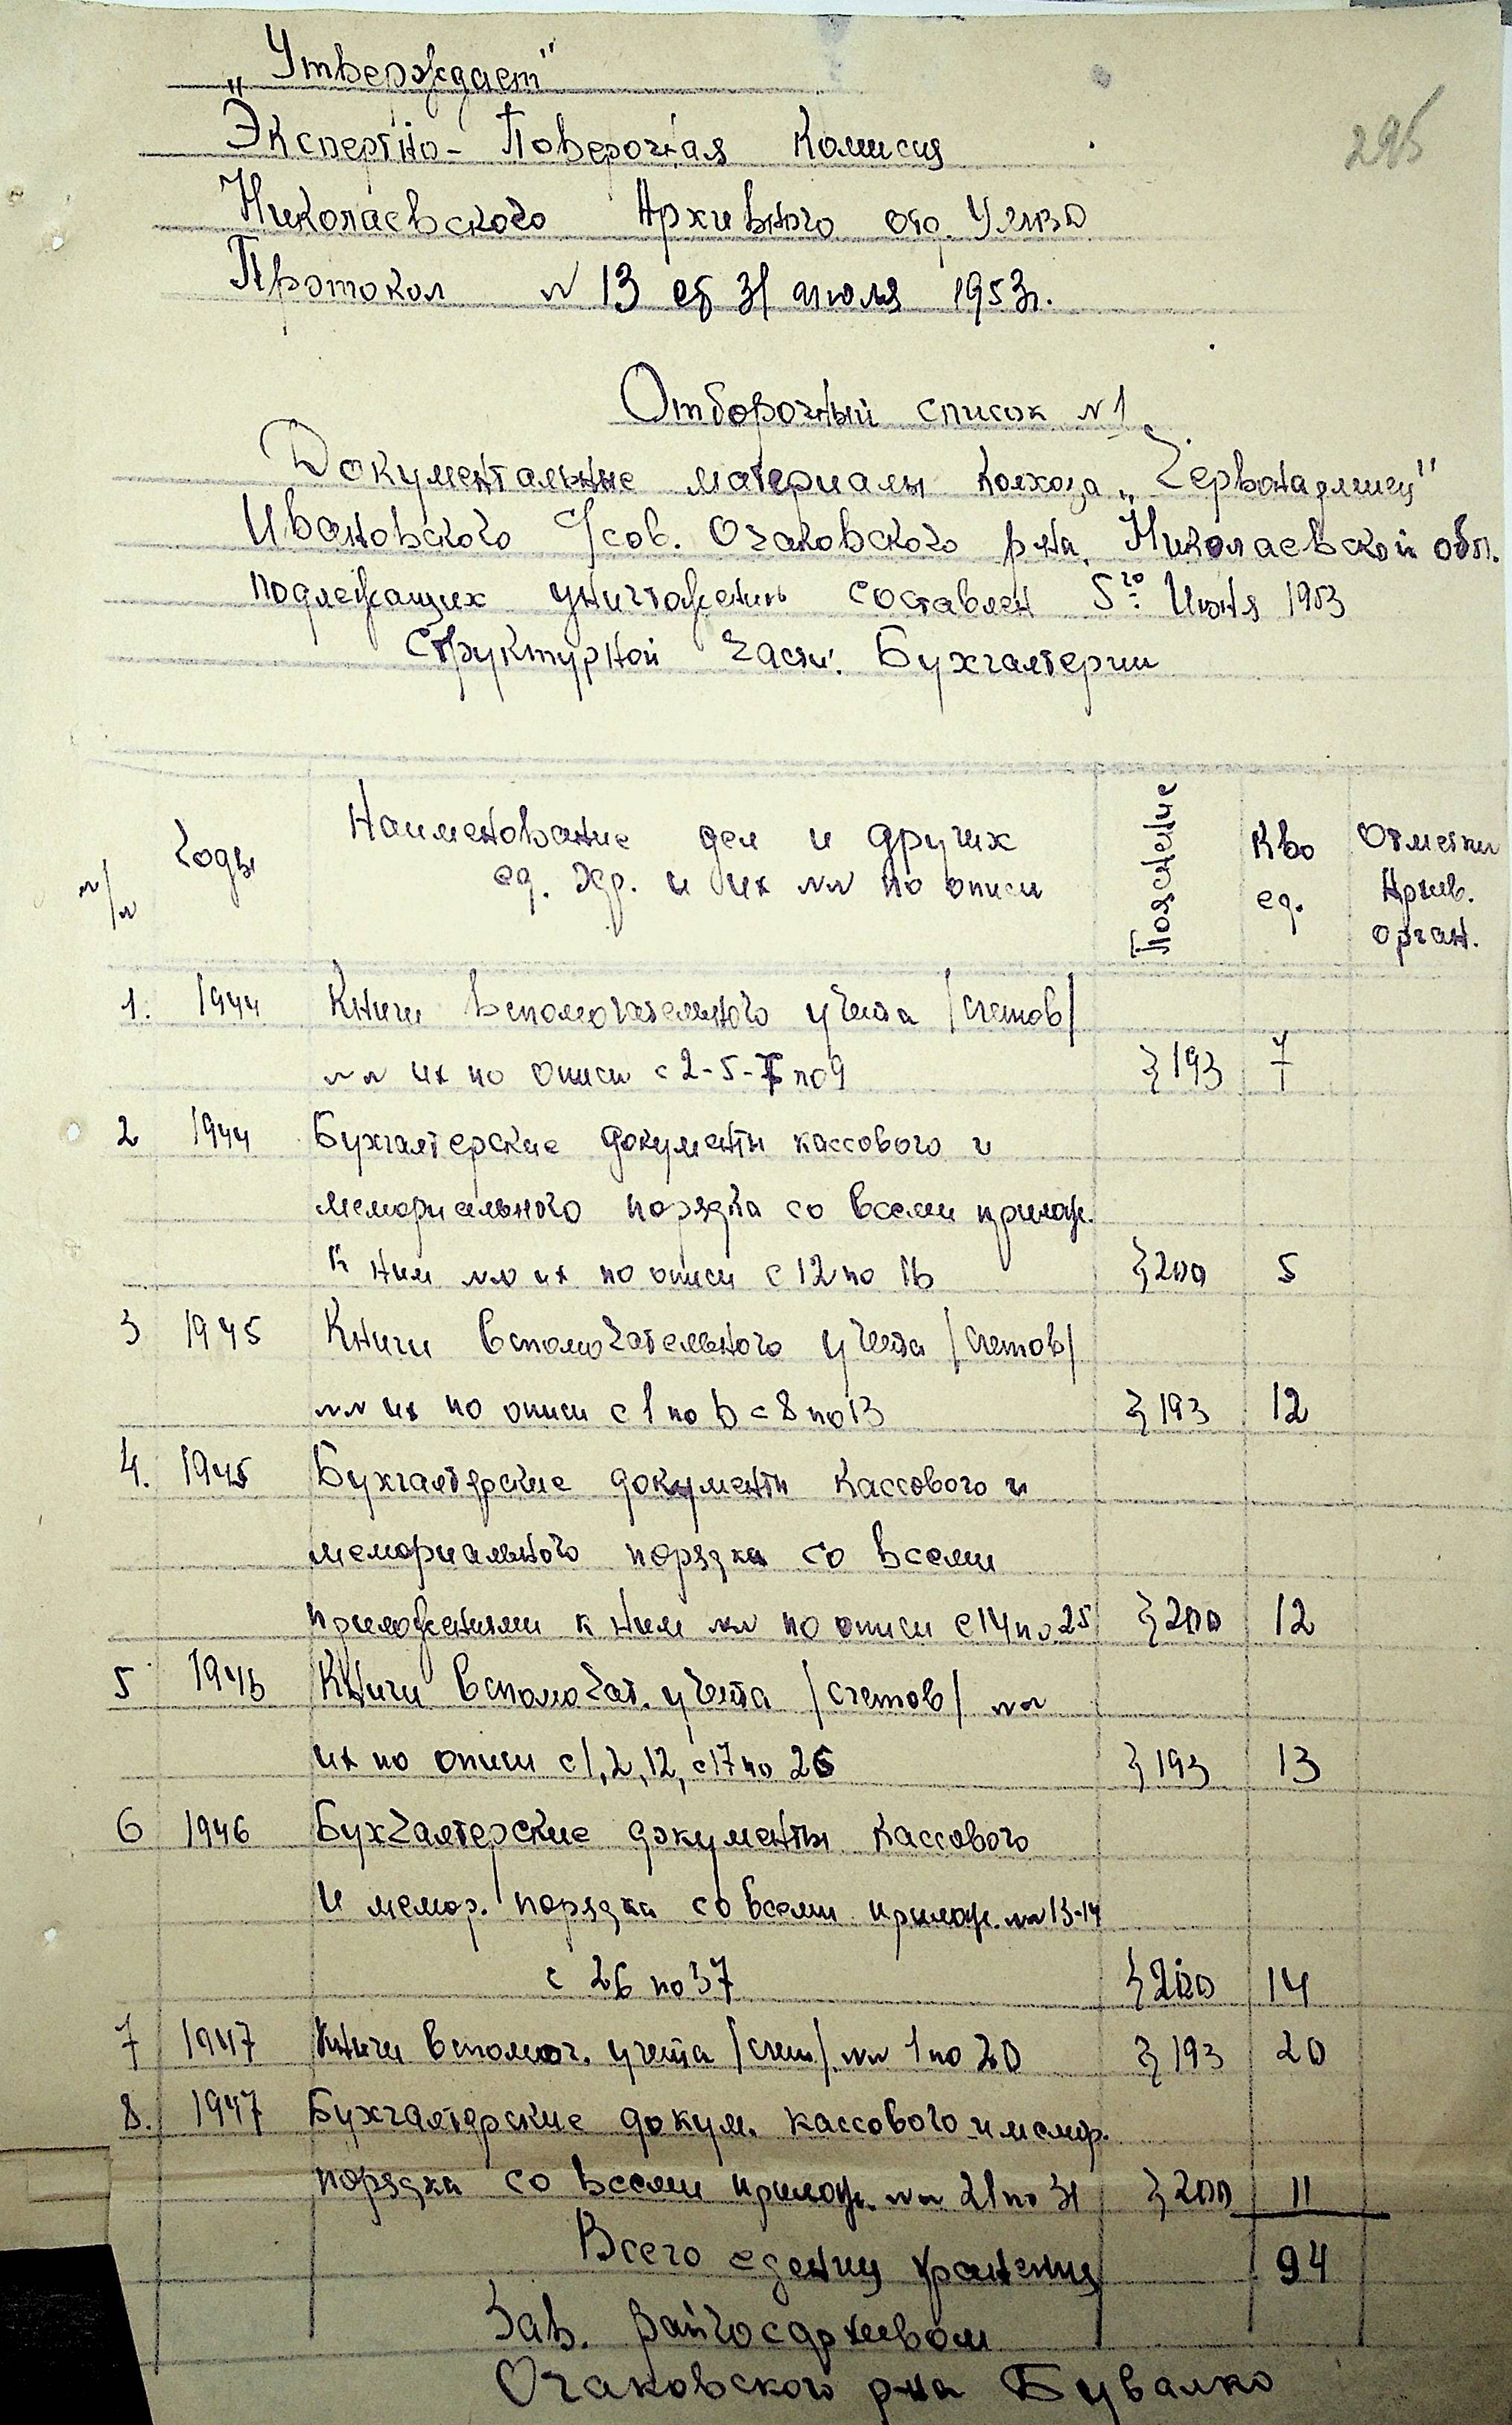 „Утверждает"
295
Экспертно- Поверочная Комисия
Николаевского Архивного отд. УМВД
Протокол № 13 от 31 июля 1953г.
Отборочный список №1
Документальные материалы колхоза „Червонармиец"
Ивановского С/сов. Очаковского р-на, Николаевской обл.
подлежащих уничтожению составлен 5го Июня 1953
Структурной части: Бухгалтерии
№/№ Годы Наименование дел и других ед. хр. и их №№ по описи Пояснение К-во ед. Отметки Архив. орган.
1. 1944 Книги вспомогательного учета /счетов/
№№ их по описи с 2-5-7 по 9 }193 7
2 1944 Бухгалтерские документы кассового и
мемориального порядка со всеми прилож.
к ним №№ их по описи с 12 по 16 }200 5
3 1945 Книги вспомогательного учета /счетов/
№№ их по описи с 1 по 6 с 8 по 13 }193 12
4. 1945 Бухгалтерские документы кассового и
мемориального порядка со всеми
приложениями к ним №№ по описи с 14 по 25 }200 12
5 1946 Книги вспомогат. учета /счетов/ №№
их по описи с 1, 2, 12, с 17 по 26 }193 13
6 1946 Бухгалтерские документы кассового
и мемор. порядка со всеми прилож. №№ 13-14
с 26 по 37 }200 14
7 1947 Книги вспомог. учета /счет/ №№ 1 по 20 }193 20
8. 1947 Бухгалтерские докум. кассового и мемор.
порядка со всеми прилож. №№ 21 по 31 }200 11
Всего едениц хранения 94
Зав. Райгосархивом
Очаковского р-на Бувалко